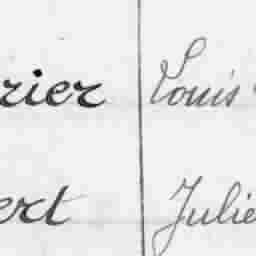 rier Louis
ert Julie